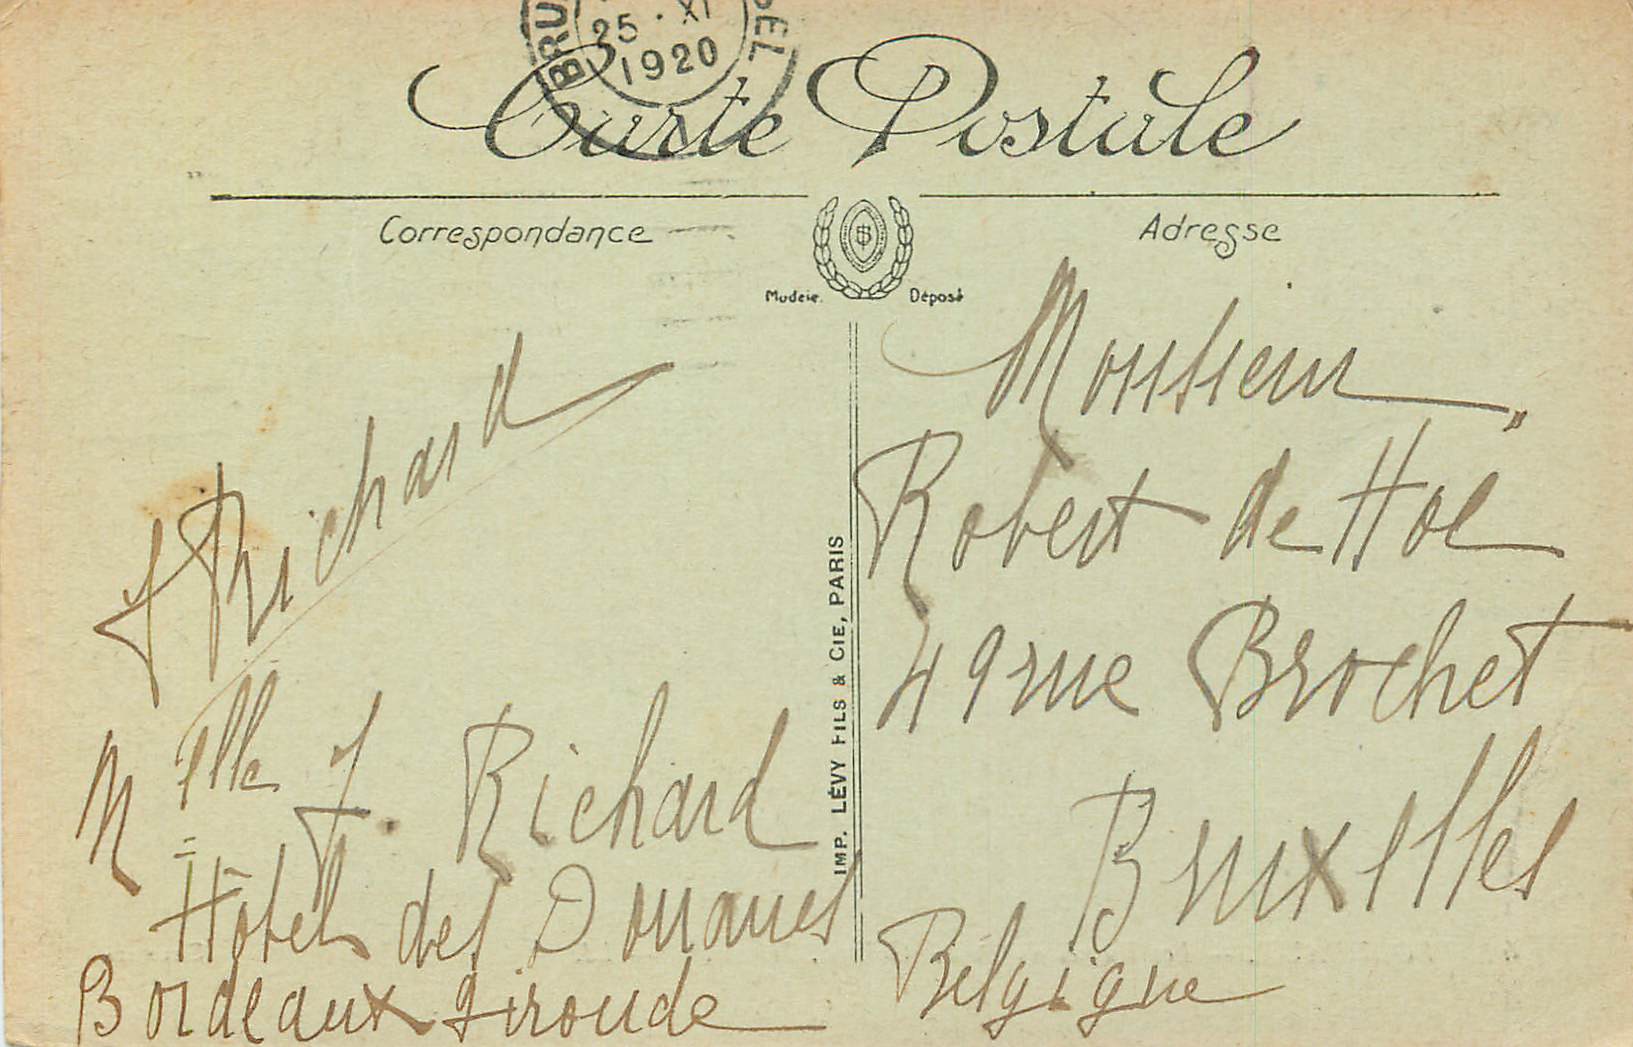 BRU EL
25 · XI
1920
Carte Postale
Correspondance
Adresse
Modèle Déposé
IMP. LÉVY FILS & CIE, PARIS
J Richard
Melle J. Richard
Hôtel des Douanes
Bordeaux Gironde
Monsieur
Robert de Hoe
49 rue Brochet
Bruxelles
Belgique